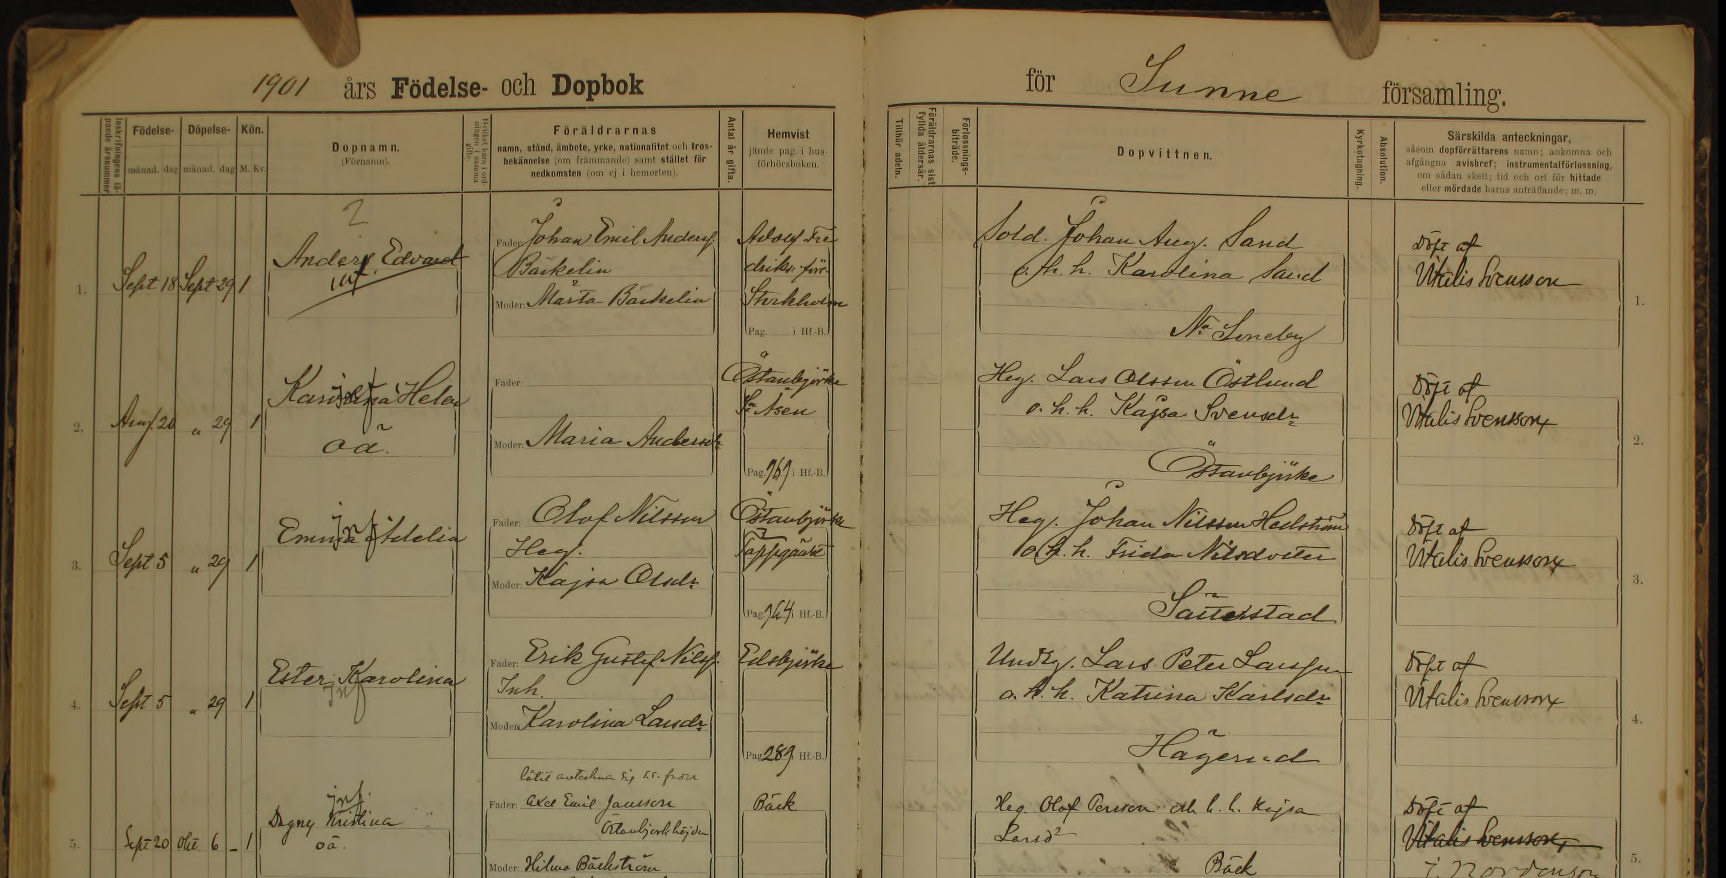 1901 års Födelse- och Dopbok
för Sunne församling.
Inskrifningens löpande årsnummer
Födelse-
månad. dag
Döpelse-
månad. dag
Kön.
M. Kv.
Dopnamn.
(Förnamn).
Föräldrarnas
namn, stånd, ämbete, yrke, nationalitet och tros-
bekännelse (om främmande) samt stället för
nedkomsten (om ej i hemorten).
Antal år gifta.
Hemvist
jämte pag. i hus-
förhörsboken.
Tillhör adeln.
Föräldrarnas sist
fyllda åldersår.
Förlossnings-
biträde.
Dopvittnen.
Kyrkotagning.
Absolution.
Särskilda anteckningar,
såsom dopförrättarens namn; ankomna och
afgångna avisbref; instrumentalförlossning,
om sådan skett; tid och ort för hittade
eller mördade barns anträffande; m. m.
2
1. Sept 18 Sept 29 1
Anders Edvard
inf
Fader: Johan Emil Anders.
Bäckelin
Moder: Märta Bäckelin
Adolf Fre
driks för
Stockholm
Pag. i Hf.-B.
Sold. Johan Aug. Sand
o. h. h. Karolina Sand
Na Soneby
Döpt af
Vitalis Svensson
1.
2. Aug. 20 " 29 1
Karolina Helen
inf
oä.
Fader:
Moder: Maria Andersdr
Östanbjörke
Sa Åsen
Pag. 969 i Hf.-B.
Heg. Lars Olsson Östlund
o. h. h. Kajsa Svensdr
Östanbjörke
Döpt af
Vitalis Svensson
2.
3. Sept 5 " 29 1
inf
Emma Adelia
Fader: Olof Nilsson
Heg.
Moder: Kajsa Olsdr
Östanbjörke
Tappgärdet
Pag. 964 i Hf.-B.
Heg. Johan Nilsson Hedström
o. h. h. Frida Nilsdotter
Sätterstad
Döpt af
Vitalis Svensson
3.
4. Sept 5 " 29 1
Ester Karolina
inf
Fader: Erik Gustef Nilss.
Inh.
Moder: Karolina Larsdr
Edsbjörke
Pag. 289 i Hf.-B.
Undtg. Lars Peter Larsson
o. h. h. Katrina Karlsdr
Hägerud
Döpt af
Vitalis Svensson
4.
5. Sept 20 Okt 6 - 1
inf.
Dagny Kristina
oä.
låtit anteckna sig s.s. fader
Fader: Axel Emil Jansson
Östanbjörkhöjden
Moder: Hilma Bäckström
Bäck
Heg. Olof Persson och h. h. Kajsa
Larsdr
Bäck
Döpt af
Vitalis Svensson
J. Nordenson
5.